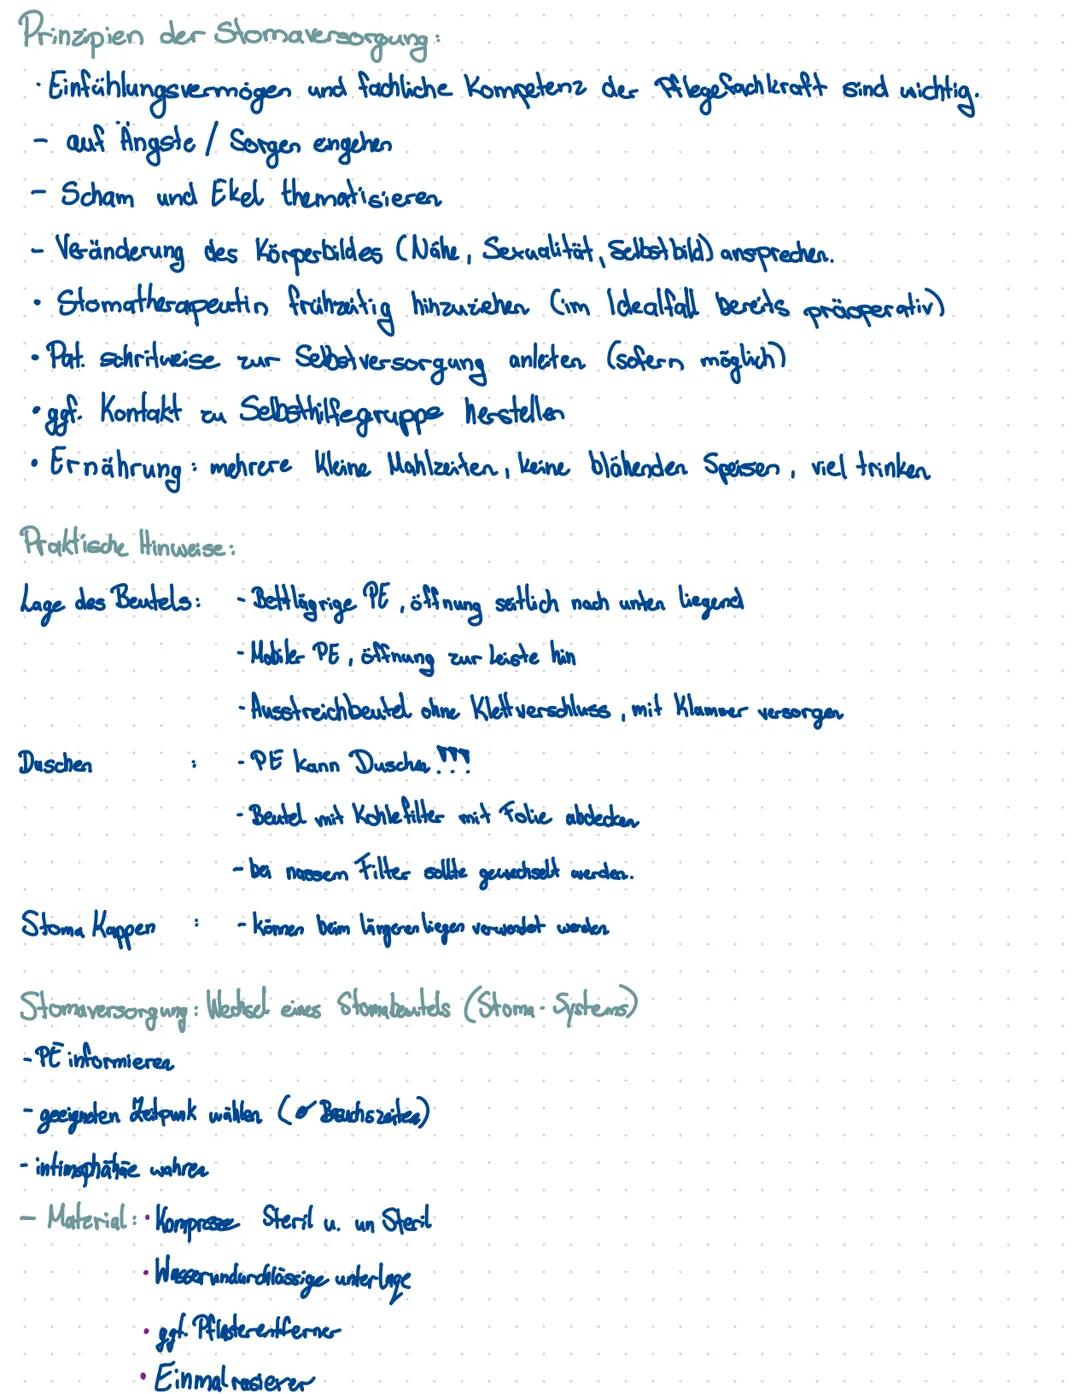 Prinzipien der Stomaversorgung:
· Einfühlungsvermögen und fachliche Kompetenz der Pflegefachkraft sind wichtig.
- auf Ängste / Sorgen engehen
- Scham und Ekel thematisieren
- Veränderung des Körperbildes (Nähe, Sexualität, Selbstbild) ansprechen.
· Stomatherapeutin frühzeitig hinzuziehen (im Idealfall bereits präoperativ)
· Pat. schritweise zur Selbstversorgung anleiten (sofern möglich)
· ggf. Kontakt zu Selbsthilfegruppe herstellen
· Ernährung: mehrere kleine Mahlzeiten, keine blähenden Speisen, viel trinken
Praktische Hinweise:
Lage des Beutels: - Bettlägrige PE, öffnung seitlich nach unten liegend
- Mobiler PE, öffnung zur Leiste hin
- Ausstreichbeutel ohne Klettverschluss, mit Klammer versorgen
Duschen : - PE kann Duschen!!!
- Beutel mit Kohlefilter mit Folie abdecken
- bei nassem Filter sollte gewechselt werden.
Stoma Kappen : - können beim längeren liegen verwendet werden
Stomaversorgung: Wechsel eines Stomabeutels (Stoma-Systems)
- PE informieren
- geeigneten Zeitpunk wählen ( Besuchszeiten)
- intimsphähäe wahren
- Material: · Kompresse Steril u. un Steril
· Wasserundurchlässige unterlage
· ggf. Pflasterentferner
· Einmalrasierer